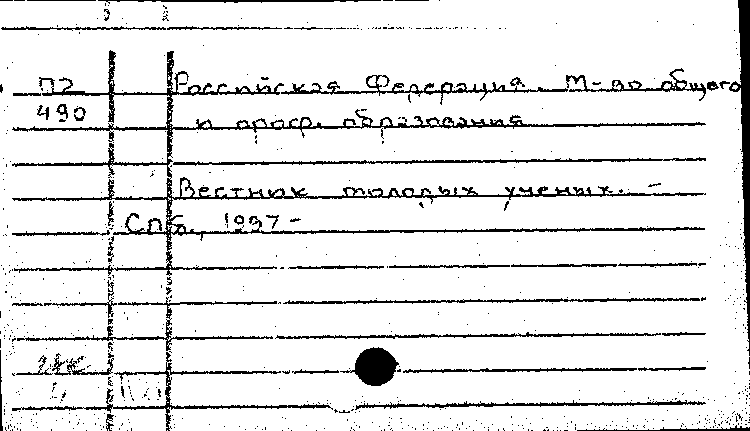 П2 Российская Федерация. М-во общего
490 и проф. образования
Вестник молодых ученых. –
СПб., 1997 –